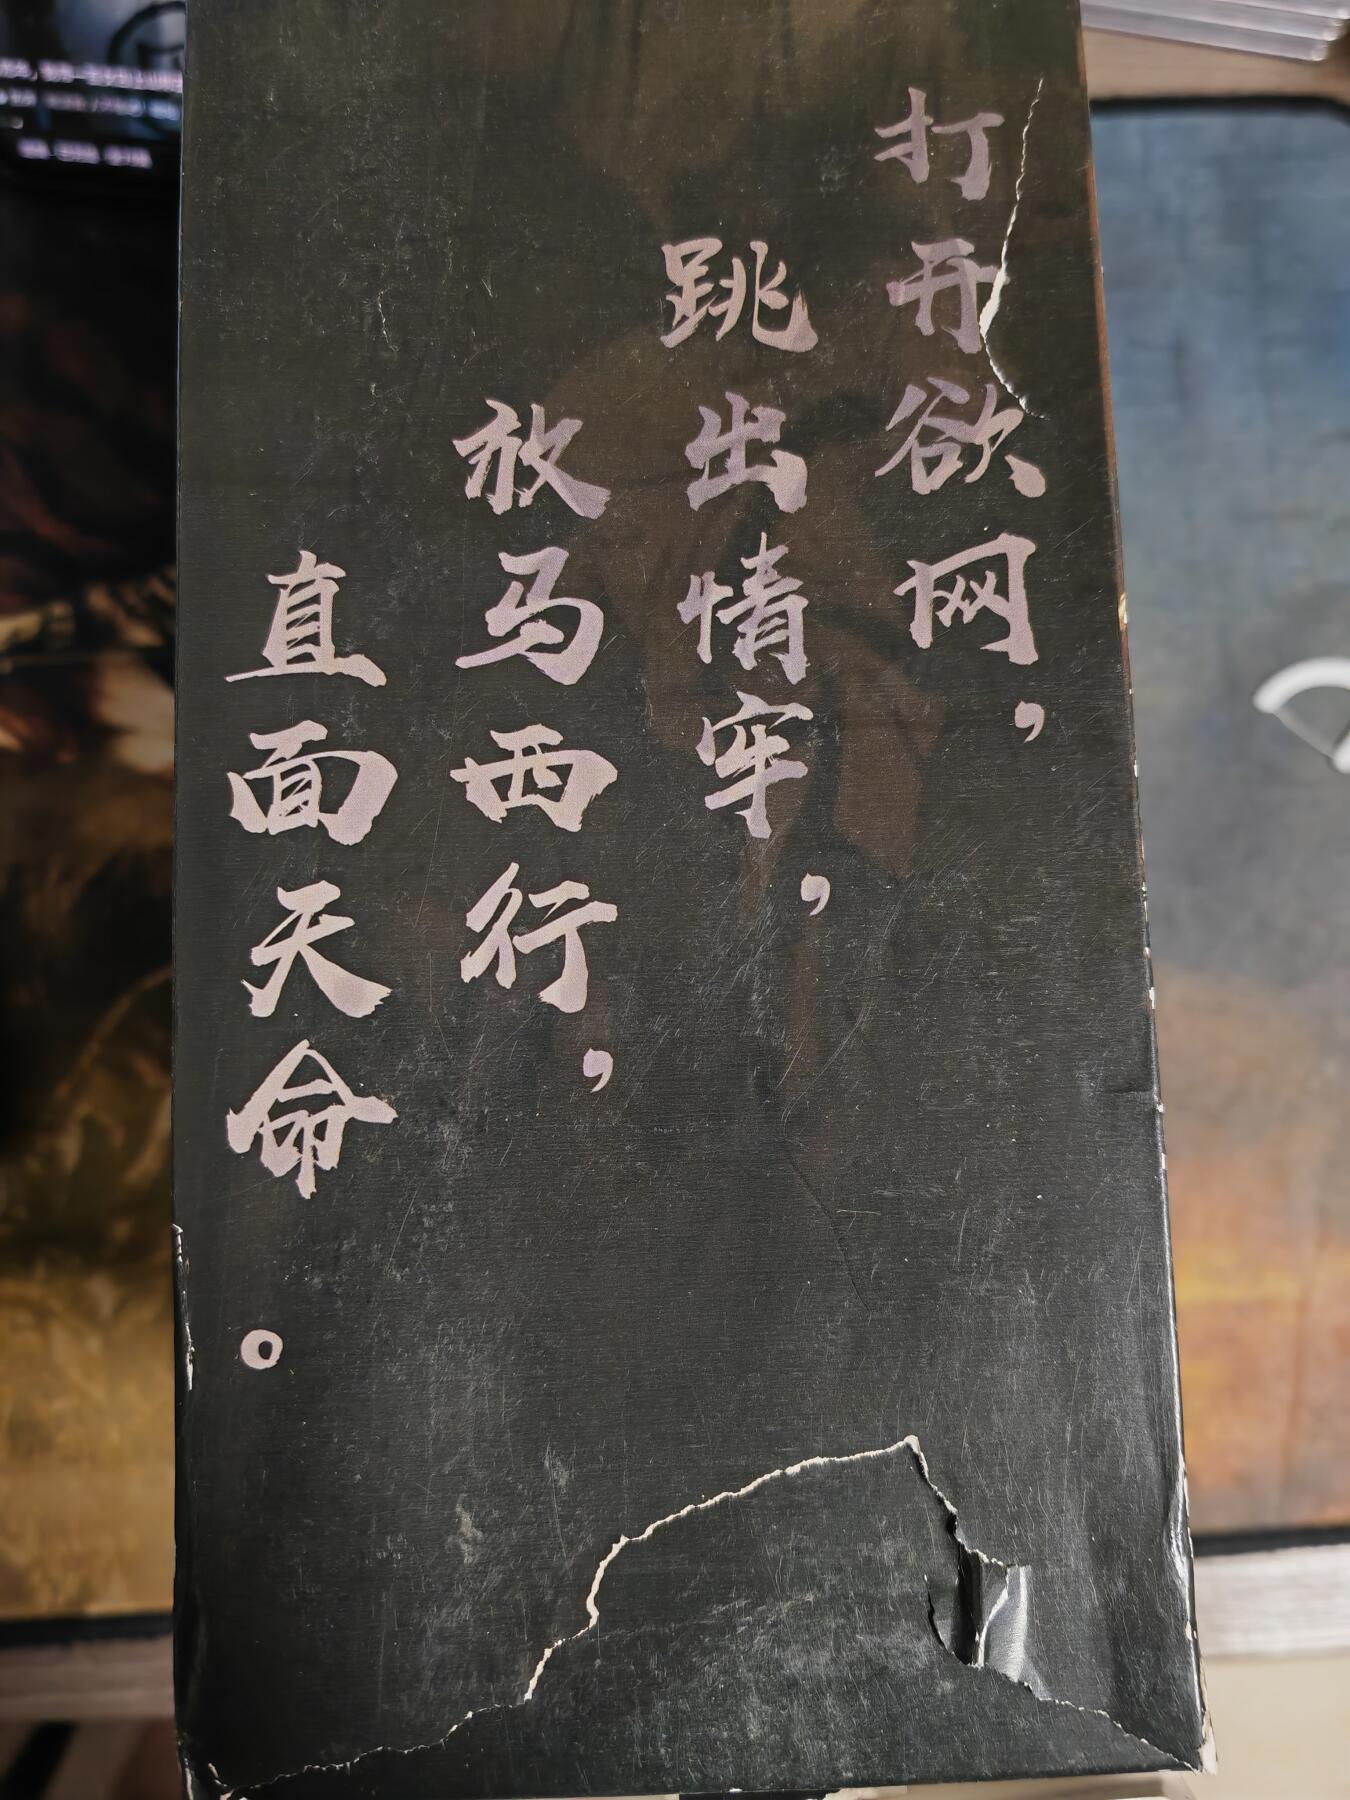 打开欲网，
跳出情牢，
放马西行，
直面天命。